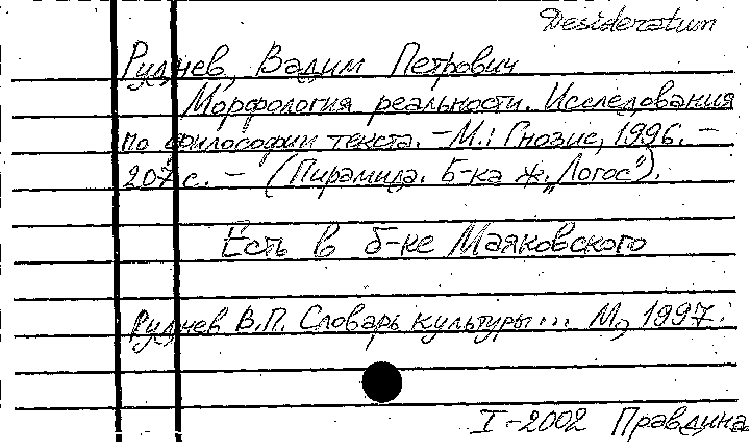 Desideratum
Руднев, Вадим Петрович
Морфология реальности. Исследования
по философии текста. - М.: Гнозис, 1996. -
207 с. - (Пирамида. Б-ка ж. „Логос").
Есть в б-ке Маяковского
Руднев В.П. Словарь культуры... М, 1997.
I-2002 Правдина